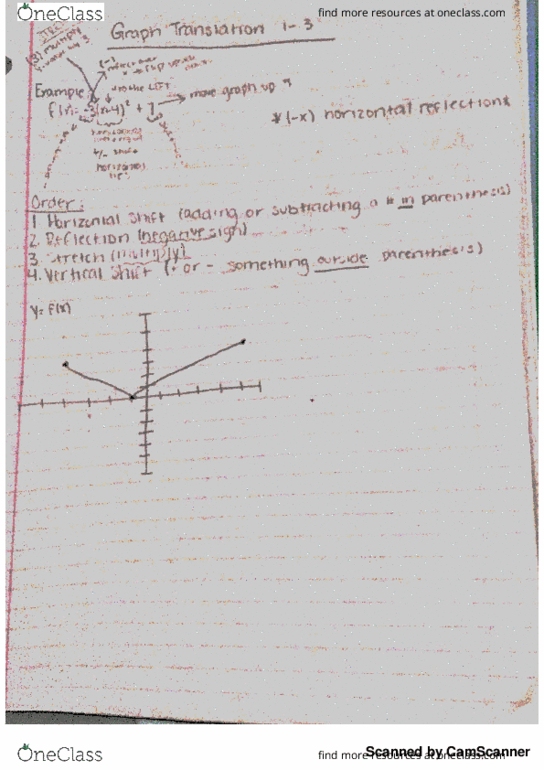 OneClass
find more resources at oneclass.com
Graph Translation 1-3
(3) multiply
Example
move graph up 7
f(x)= -3(x-4)² + 7
* (-x) horizontal reflection *
horizontal
Order:
1 Horizontal shift (adding or subtracting a # in parenthesis)
2. Reflection (negative sign)
3. Stretch (multiply)
4. Vertical shift (+ or - something outside parenthesis)
y= f(x)
OneClass
find more resources at oneclass.com
Scanned by CamScanner